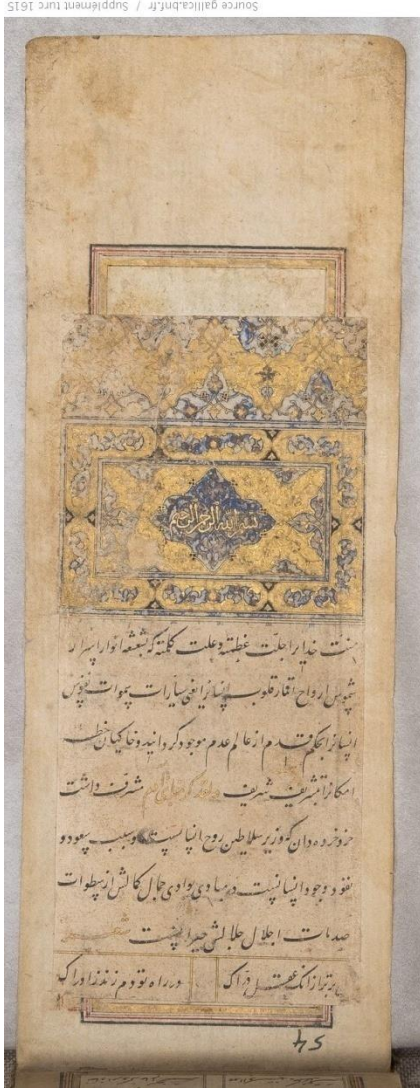 Source gallica.bnf.fr / Supplément turc 1615
بسم الله الرحمن الرحیم
منت خدایرا جلّت عظمته و علت کلمته که شعشعه انوار اسرار
شموس ارواح اقمار قلوب انسانرا یعنی سیارات سموات نفوس
انسانرا بحکم قدم از عالم عدم موجود گردانید و خاکیان خطه
امکانرا تشریف شریف مشرف داشت
خرده دان که وزیر سلاطین روح انسانیست و سبب سعود و
وجود انسانیست در مبادی وادی جمال کمالش از سطوات
صدمات اجلال جلالش حیرانست شعر
برتر از آنک عقل درّاک
در راه تو دم زند ز ادراک
54